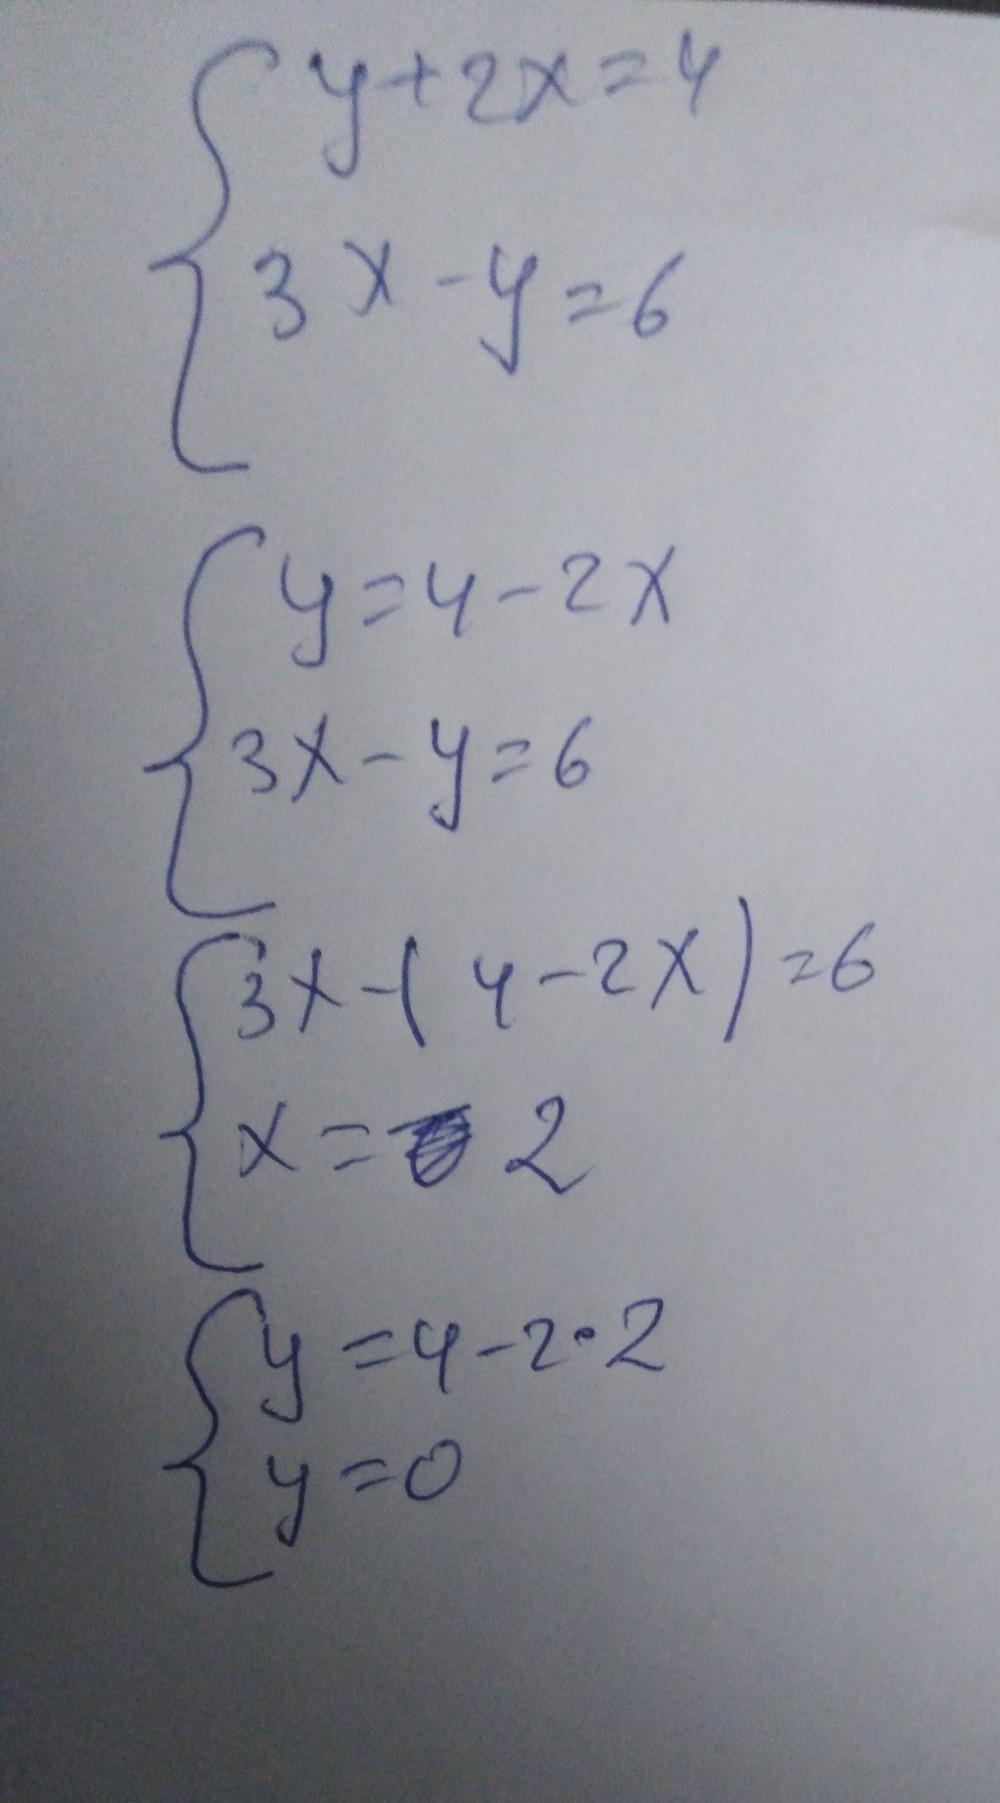 y+2x=4
3x-y=6
y=4-2x
3x-y=6
3x-(4-2x)=6
x= 2
y=4-2·2
y=0